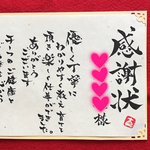 感謝状
様
優しく丁寧に
わかりやすく教えて
頂き楽しく仕事ができました。
ありがとう
ございます